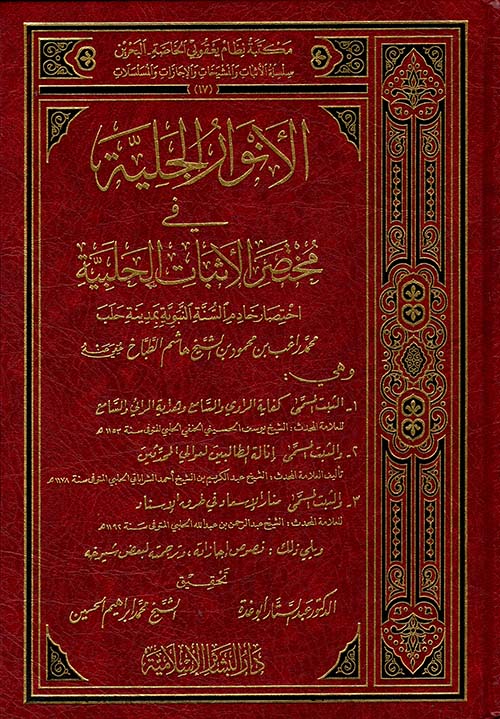 مكتبة نظام يعقوبي الخاصة - البحرين
سلسلة الأثبات والمشيخات والإجازات والمسلسلات
(١٧)
الأنوار الجلية
في
مختصر الأثبات الحلبية
اختصار خادم السنة النبوية بمدينة حلب
محمد راغب بن محمود بن الشيخ هاشم الطباخ عفي عنه
وهي:
١- الثبت المسمى كفاية الراوي والسامع وهداية الرائي والسامع
للعلامة المحدث: الشيخ يوسف الحسيني الحنفي الحلبي المتوفى سنة ١١٥٣ هـ
٢- والثبت المسمى إنالة الطالبين لعوالي المحدثين
تأليف العلامة المحدث: الشيخ عبد الكريم بن الشيخ أحمد الشراباتي الحلبي المتوفى سنة ١١٧٨ هـ
٣- والثبت المسمى منار الإسعاد في طرق الإسناد
للعلامة المحدث: الشيخ عبد الرحمن بن عبد الله الحلبي المتوفى سنة ١١٩٢ هـ
ويلي ذلك: نصوص إجازاته، وترجمته لبعض شيوخه
تحقيق
الدكتور عبد الستار أبو غدة
الشيخ محمد إبراهيم الحسين
دار البشائر الإسلامية